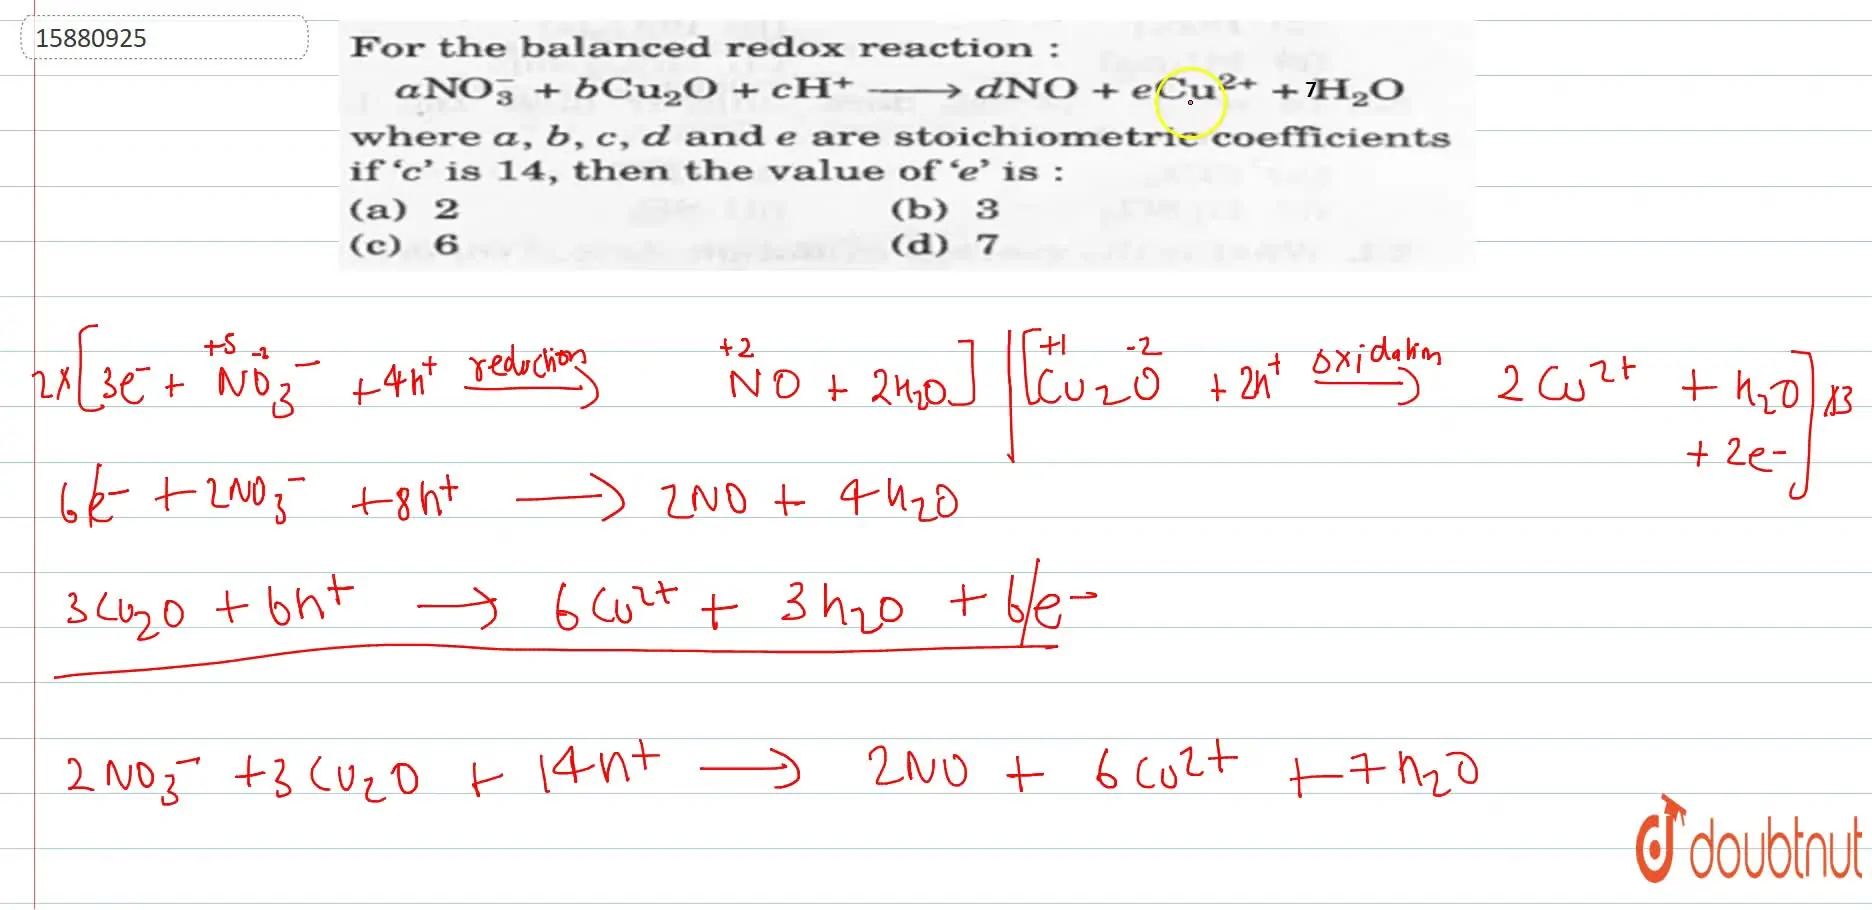 15880925
For the balanced redox reaction :
aNO₃⁻ + bCu₂O + cH⁺ ⟶ dNO + eCu²⁺ + 7H₂O
where a, b, c, d and e are stoichiometric coefficients
if ‘c’ is 14, then the value of ‘e’ is :
(a) 2 (b) 3
(c) 6 (d) 7
2×[3e⁻ + N⁺⁵O⁻²₃⁻ + 4H⁺ —reduction→ N⁺²O + 2H₂O] | [Cu⁺¹₂O⁻² + 2H⁺ —oxidation→ 2Cu²⁺ + H₂O
+ 2e⁻]×3
6e⁻ + 2NO₃⁻ + 8H⁺ ⟶ 2NO + 4H₂O
3Cu₂O + 6H⁺ ⟶ 6Cu²⁺ + 3H₂O + 6e⁻
2NO₃⁻ + 3Cu₂O + 14H⁺ ⟶ 2NO + 6Cu²⁺ + 7H₂O
doubtnut